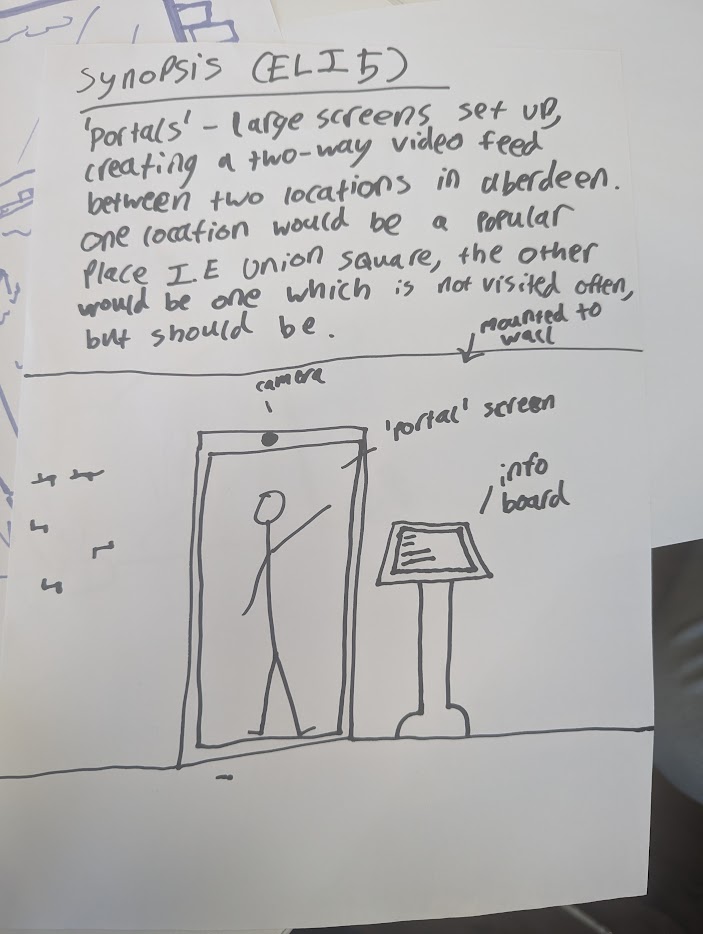 Synopsis (ELI5)
'Portals' - large screens set up,
creating a two-way video feed
between two locations in aberdeen.
one location would be a popular
place I.E union square, the other
would be one which is not visited often,
but should be.
mounted to
wall
camera
'portal' screen
info
board